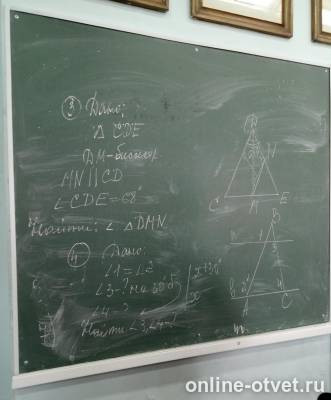 ③ Дано:
△ CDE
DM-биссек
MN || CD
∠CDE = 68°
Найти: ∠ △DMN
④ Дано:
∠1 = ∠2
∠3-? на 30° б
∠4-?
Найти ∠3, ∠4-?
x+30°
x
D
N
C
M
E
B
1
2
4
A
C
online-otvet.ru